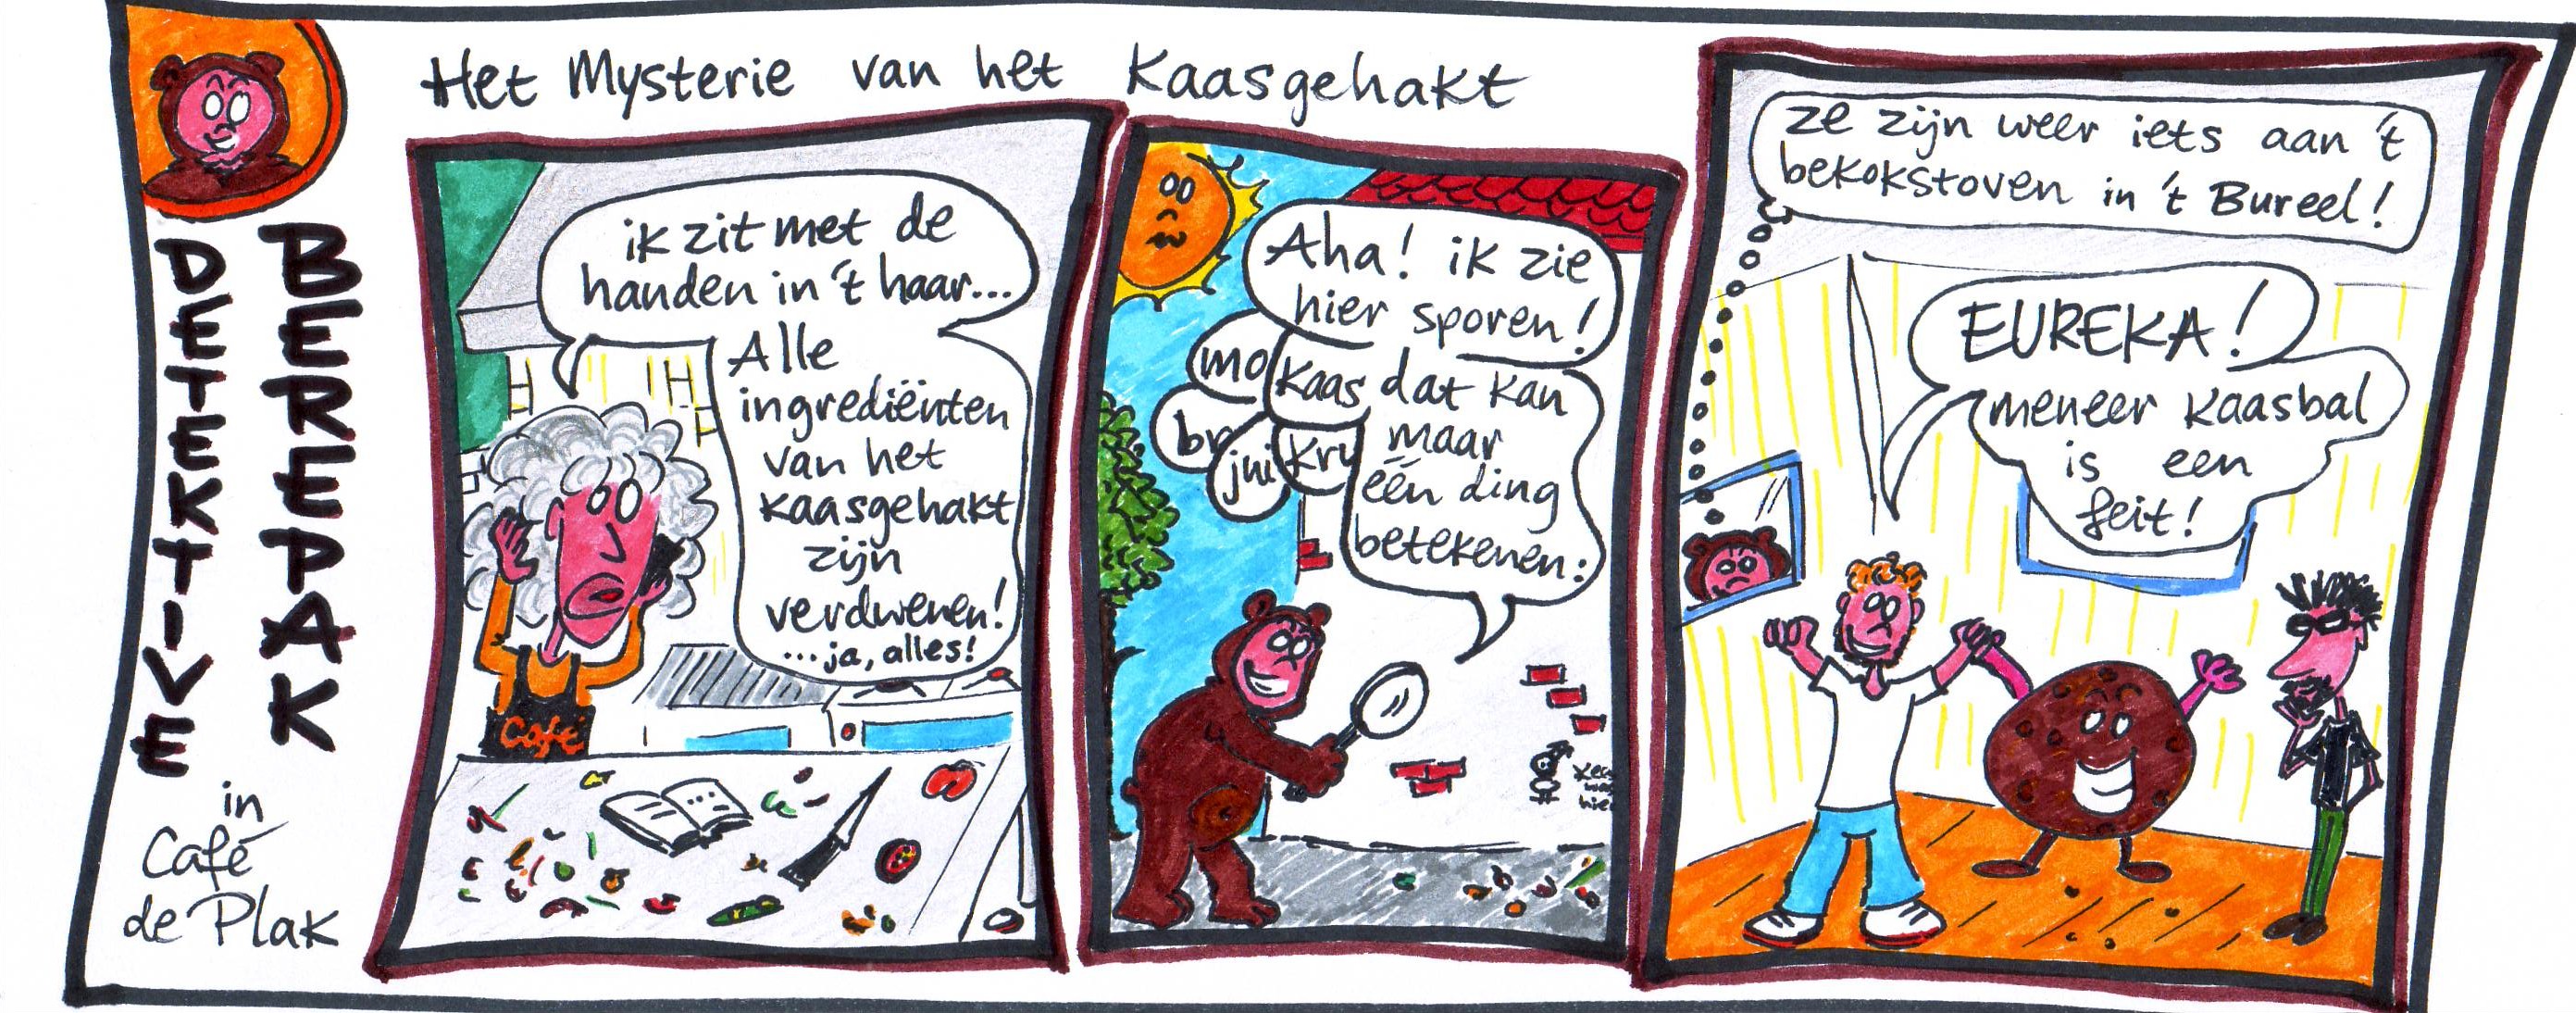 Het Mysterie van het Kaasgehakt
DETEKTIVE
BEREPAK
in
Café
de Plak
ik zit met de
handen in 't haar...
Alle
ingrediënten
van het
kaasgehakt
zijn
verdwenen!
...ja, alles!
Café
Aha! ik zie
hier sporen!
mo
Kaas
br
jui
kru
dat kan
maar
één ding
betekenen:
ze zijn weer iets aan 't
bekokstoven in 't Bureel!
EUREKA!
meneer kaasbal
is een
feit!